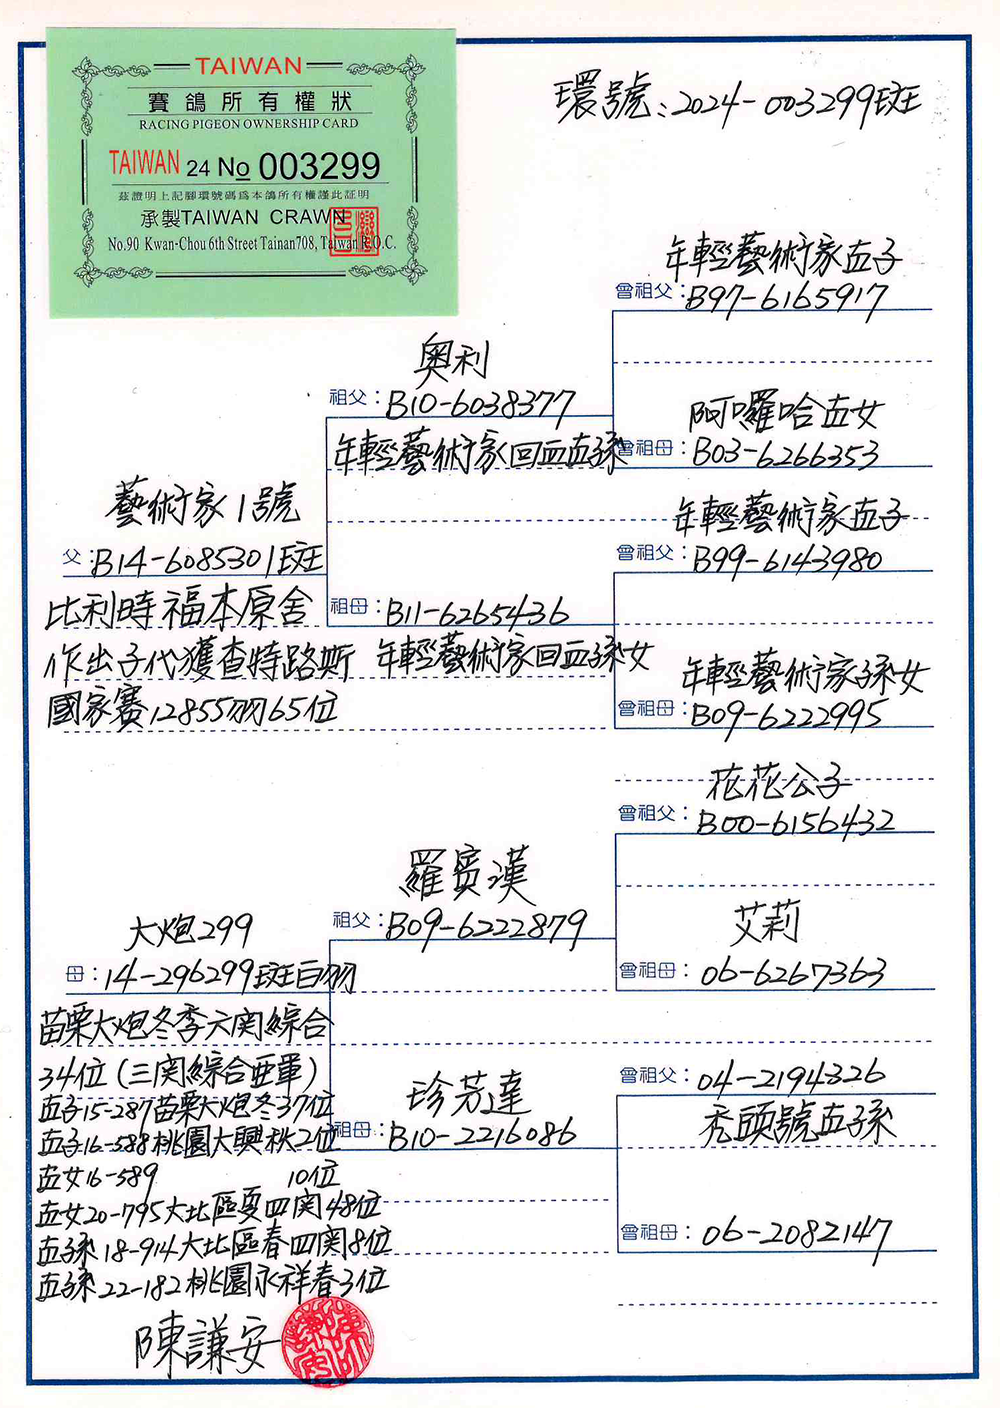 TAIWAN
賽鴿所有權狀
RACING PIGEON OWNERSHIP CARD
TAIWAN 24 No 003299
茲證明上記腳環號碼為本鴿所有權謹此証明
承製TAIWAN CRAWN
No.90 Kwan-Chou 6th Street Tainan708, Taiwan R.O.C.
環號:2024-003299斑
年輕藝術家直子
曾祖父:B97-6165917
奧利
祖父:B10-6038377
年輕藝術家回血直孫
阿囉哈直女
曾祖母:B03-6266353
藝術家1號
父:B14-6085301斑
比利時福本原舍
作出子代獲查特路斯
國家賽12855羽65位
年輕藝術家直子
曾祖父:B99-6143980
祖母:B11-6265436
年輕藝術家回血孫女
年輕藝術家孫女
曾祖母:B09-6222995
花花公子
曾祖父:B00-6156432
羅賓漢
祖父:B09-6222879
艾莉
曾祖母:06-6267363
大炮299
母:14-296299斑白羽
苗栗大炮冬季六関綜合
34位(三関綜合亞軍)
直子15-287苗栗大炮冬37位
直子16-588桃園大興秋2位
直女16-589 10位
直女20-795大北區夏四関48位
直孫18-914大北區春四関8位
直孫22-182桃園永祥春3位
曾祖父:04-2194326
禿頭號直孫
珍芳達
祖母:B10-2216086
曾祖母:06-2082147
陳謙安